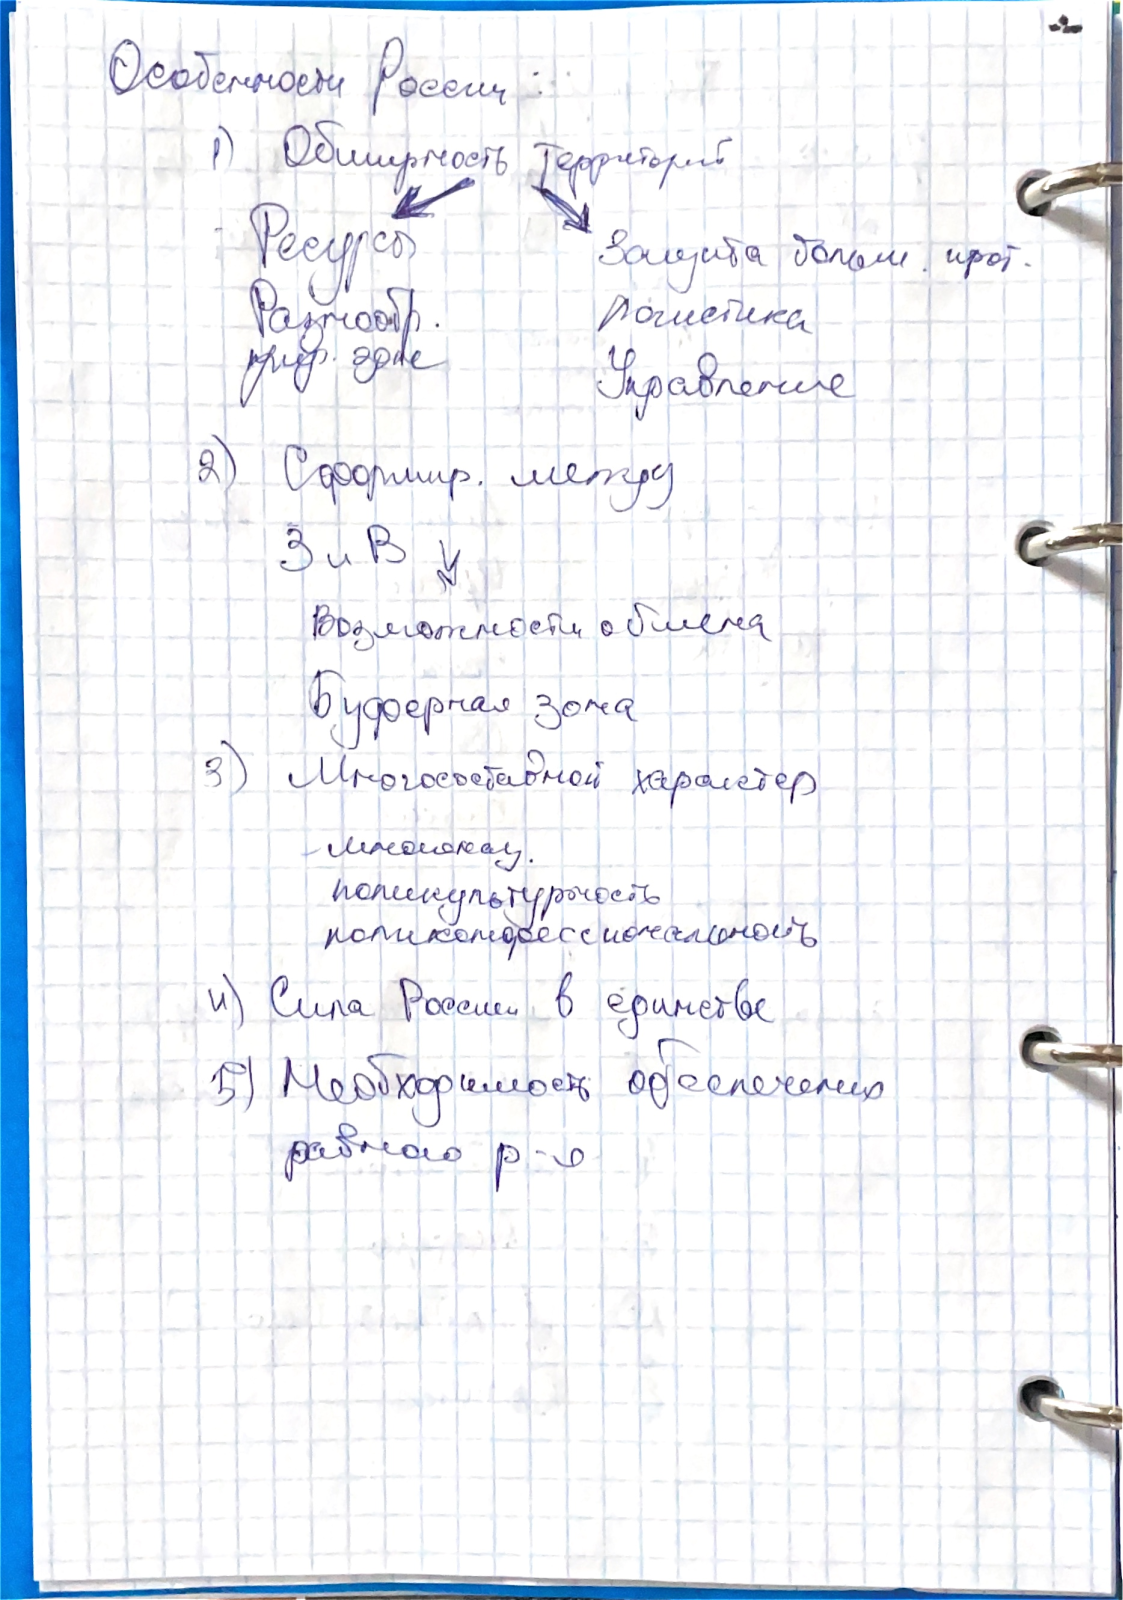 Особенности России:
1) Обширность территорий
Ресурсы
Защита больш. прот.
Разнообр.
Логистика
прир. зон
Управление
2) Сформир. между
З и В
Возможности обмена
Буферная зона
3) Многосоставной характер
- многонац.
поликультурность
поликонфессиональность
4) Сила России в единстве
5) Необходимость обеспечения
равного р-я